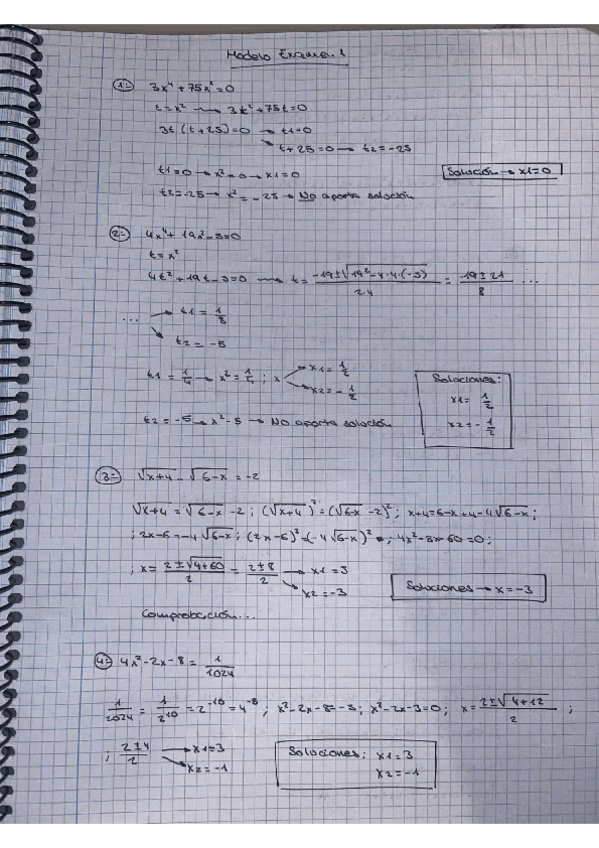 Modelo Examen 1
1:- 3x⁴ + 75x² = 0
t = x² → 3t² + 75t = 0
3t (t + 25) = 0 → t1 = 0
t + 25 = 0 → t2 = -25
t1 = 0 → x² = 0 → x1 = 0
Solución → x1 = 0
t2 = -25 → x² = -25 → No aporta solución
2:- 4x⁴ + 19x² - 5 = 0
t = x²
4t² + 19t - 5 = 0 → t = (-19 ± √(19² - 4·4·(-5))) / 2·4 = (-19 ± 21) / 8 ...
... → t1 = 1/8
t2 = -5
t1 = 1/4 → x² = 1/4 ; x → x1 = 1/2
x2 = - 1/2
t2 = -5 → x² - 5 → No aporta solución
Soluciones:
x1 = 1/2
x2 = - 1/2
3:- √(x+4) - √(6-x) = -2
√(x+4) = √(6-x) - 2 ; (√(x+4))² = (√(6-x) - 2)² ; x+4 = 6-x+4-4√(6-x) ;
; 2x-6 = -4√(6-x) ; (2x-6)² = (-4√(6-x))² ; 4x² - 8x - 60 = 0 ;
; x = (2 ± √(4+60)) / 2 = (2 ± 8) / 2 → x1 = 3
x2 = -3
Soluciones → x = -3
Comprobación...
4:- 4^(x²-2x-8) = 1/1024
1/1024 = 1/2¹⁰ = 2⁻¹⁰ = 4⁻⁵ ; x² - 2x - 8 = -3 ; x² - 2x - 3 = 0 ; x = (2 ± √(4+12)) / 2 ;
; (2 ± 4) / 2 → x1 = 3
x2 = -1
Soluciones: x1 = 3
x2 = -1